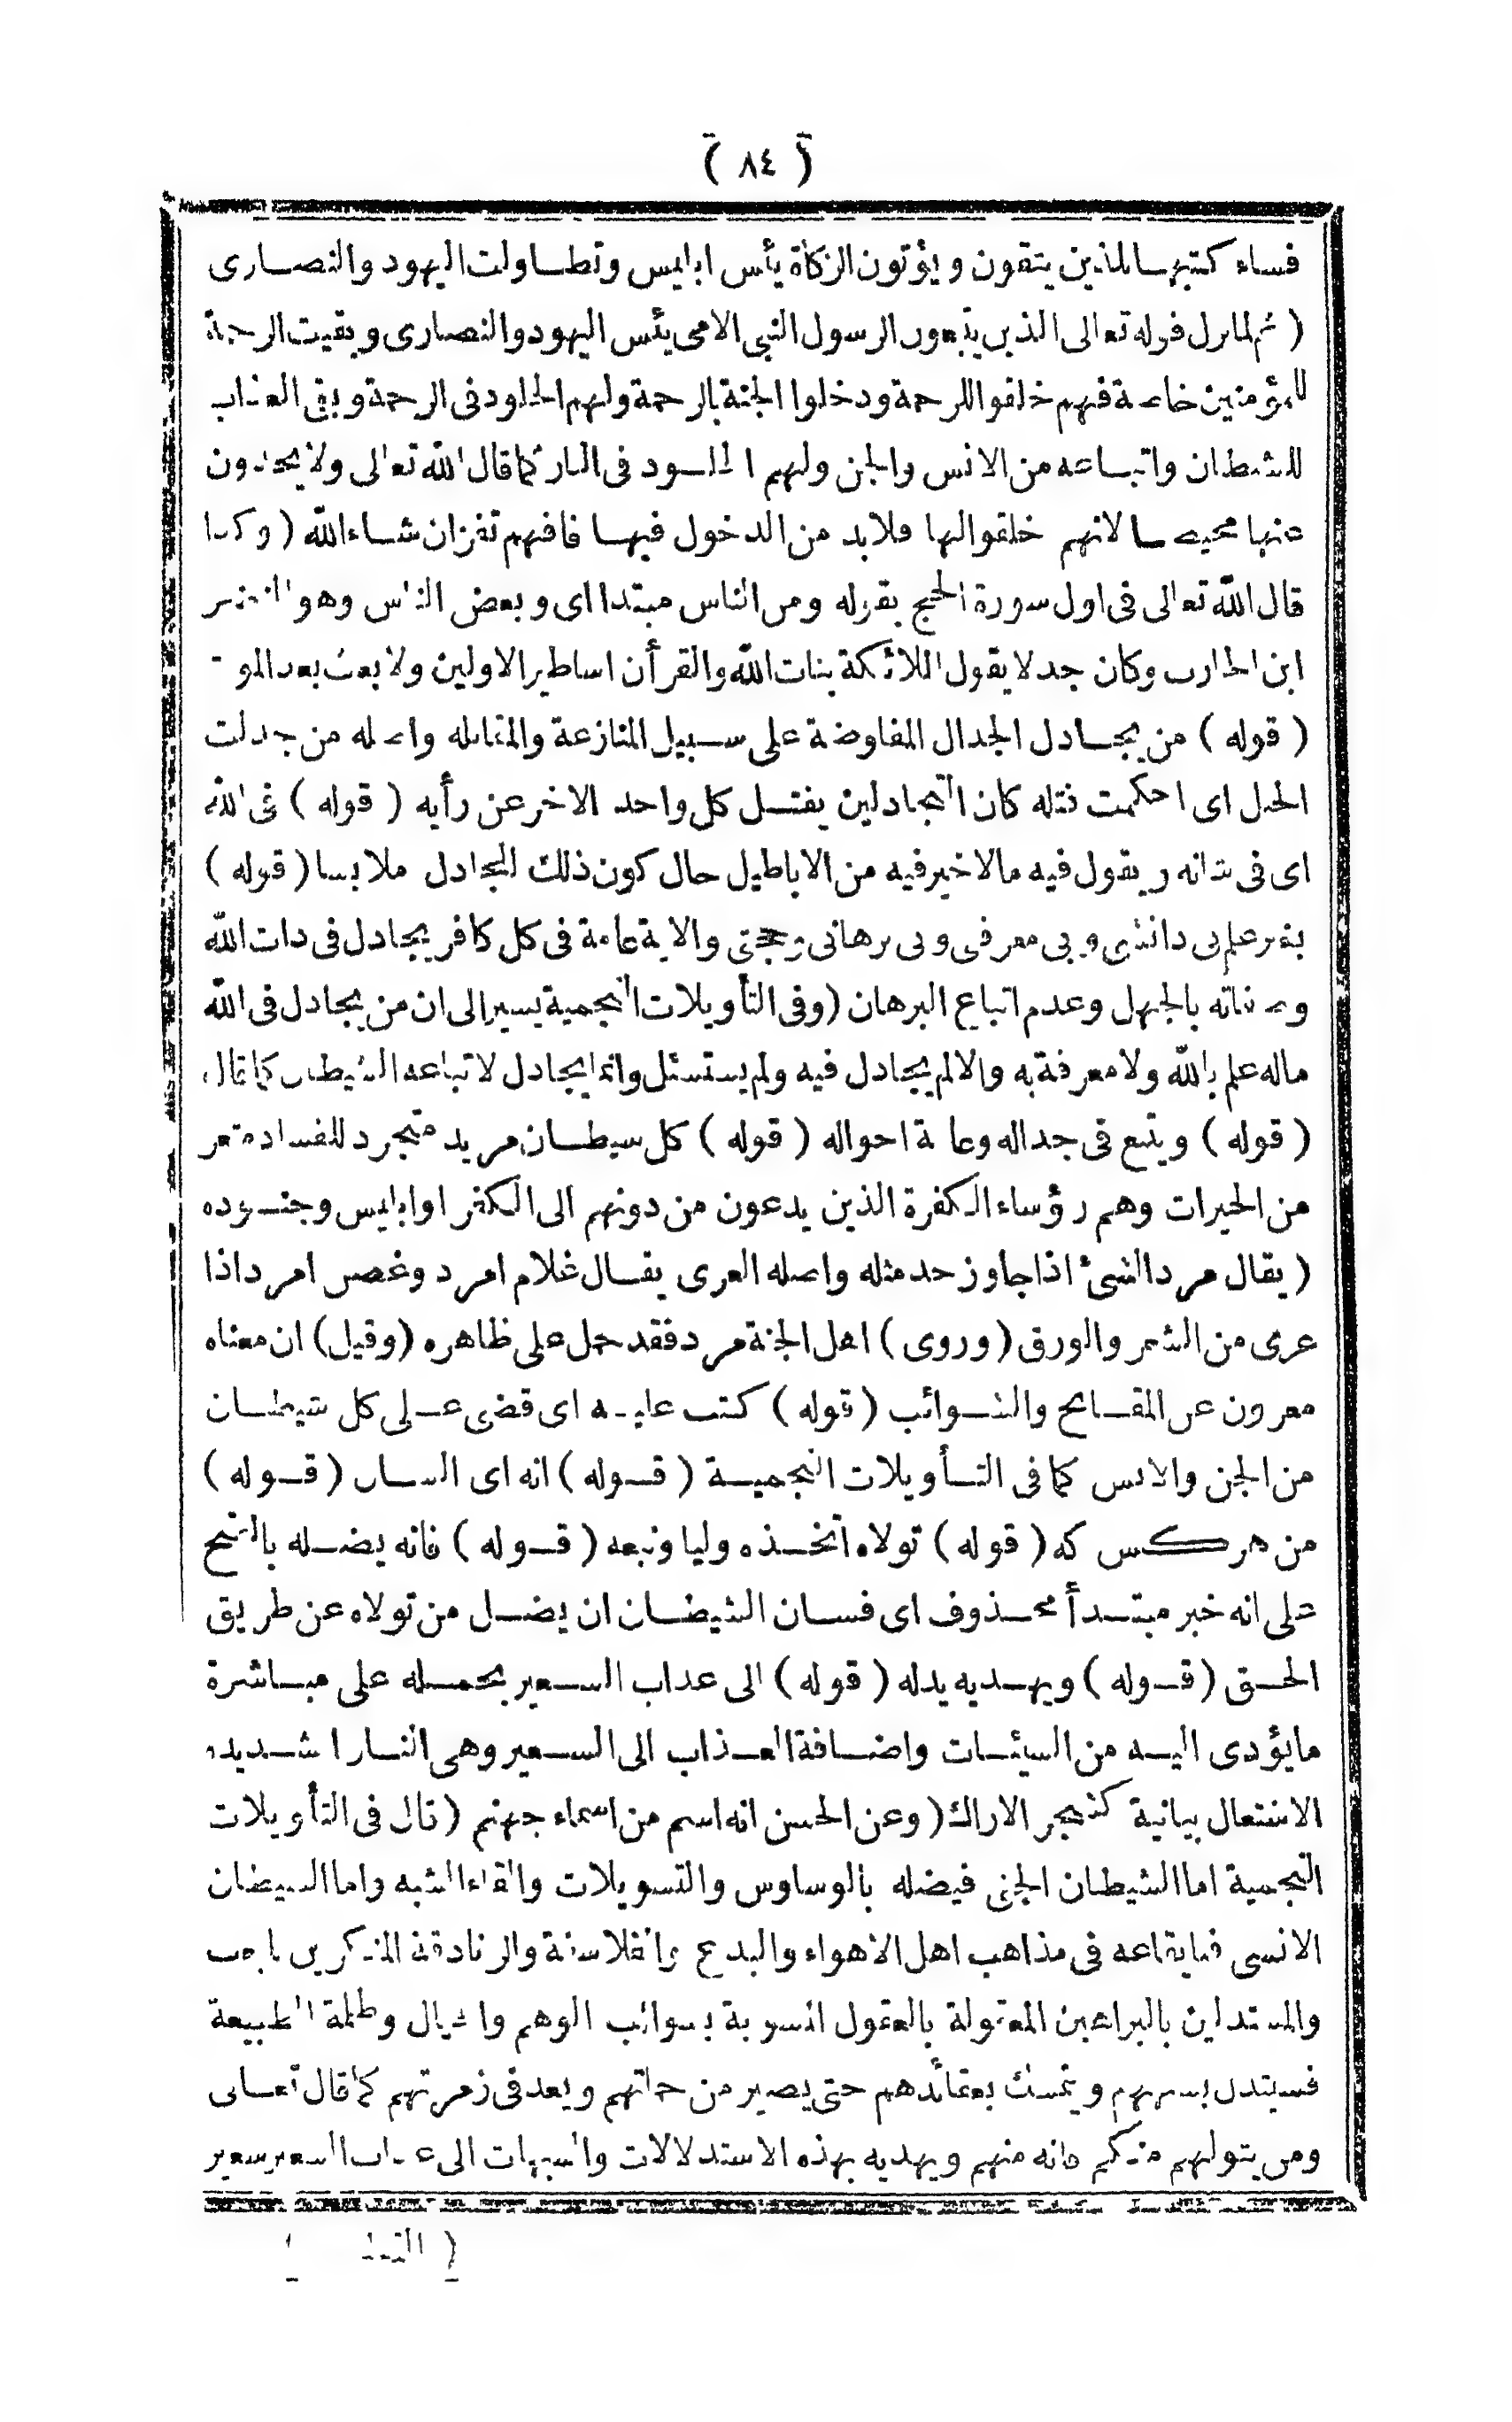 ( ٨٤ )
فساء كتبها للذين يتقون ويؤتون الزكاة يأس ابليس وتطاولت اليهود والنصارى
( ثم لما نزل قوله تعالى الذين يتبعون الرسول النبى الامى يئس اليهود والنصارى وبقيت الرحمة
للمؤمنين خاصة فهم خلقوا للرحمة ودخلوا الجنة بالرحمة ولهم الخلود فى الرحمة وبقى العذاب
للشيطان واتباعه من الانس والجن ولهم الخلود فى النار كما قال الله تعالى ولا يجدون
عنها محيصا لانهم خلقوا لها فلابد من الدخول فيها فافهم تفز ان شاء الله ( وكذا
قال الله تعالى فى اول سورة الحج بقوله ومن الناس مبتدا اى وبعض الناس وهو النضر
ابن الحارث وكان جدلا يقول الملائكة بنات الله والقرأن اساطير الاولين ولا بعث بعد الموت
( قوله ) من يجادل الجدال المفاوضة على سبيل المنازعة والمقابله واصله من جدلت
الحبل اى احكمت فتله كان المتجادلين يفتل كل واحد الاخر عن رأيه ( قوله ) فى الله
اى فى شانه ويقول فيه مالا خير فيه من الاباطيل حال كون ذلك المجادل ملابسا ( قوله )
بغير علم بى دانشى وبى معرفى وبى برهانى وحجتى والاية عامة فى كل كافر يجادل فى ذات الله
وصفاته بالجهل وعدم اتباع البرهان ( وفى التأويلات النجمية يسير الى ان من يجادل فى الله
ماله علم بالله ولا معرفة به والا لم يجادل فيه ولم يستسئل وانما يجادل لاتباعه الشيطان كما قال
( قوله ) ويتبع فى جداله وعامة احواله ( قوله ) كل سيطان مريد متجرد للفساد متعر
من الخيرات وهم رؤساء الكفرة الذين يدعون من دونهم الى الكفر او ابليس وجنوده
( يقال مرد الشئ اذا جاوز حد مثله واصله العرى يقال غلام امرد وغصن امرد اذا
عرى من الشعر والورق ( وروى ) اهل الجنة مرد فقد حمل على ظاهره ( وقيل ) ان معناه
معرون عن المقابح والشوائب ( قوله ) كتب عليه اى قضى على كل شيطان
من الجن والانس كما فى التأويلات النجمية ( قوله ) انه اى الشان ( قوله )
من هر كس كه ( قوله ) تولاه اتخذه وليا وتبعه ( قوله ) فانه يضله بالفتح
على انه خبر مبتدأ محذوف اى فسان الشيطان ان يضل من تولاه عن طريق
الحق ( قوله ) ويهديه يدله ( قوله ) الى عذاب السعير بحمله على مباشرة
مايؤدى اليه من السيئات واضافة العذاب الى السعير وهى النار الشديده
الاشتعال بيانية كشجر الاراك ( وعن الحسن انه اسم من اسماء جهنم ( قال فى التأويلات
النجمية اما الشيطان الجنى فيضله بالوساوس والتسويلات والقاء الشبه واما الشيطان
الانسى فبايقاعه فى مذاهب اهل الاهواء والبدع والفلاسفة والزنادقة المنكرين للبعث
والمستدلين بالبراهين المعقولة بالعقول المشوبة بشوائب الوهم والخيال وظلمة الطبيعة
فسيتدل بسبههم ويتمسك بعقائدهم حتى يصير من جملتهم ويعد فى زمرتهم كما قال تعالى
ومن يتولهم منكم فانه منهم ويهديه بهذه الاستدلالات والشبهات الى عذاب السعير سعير